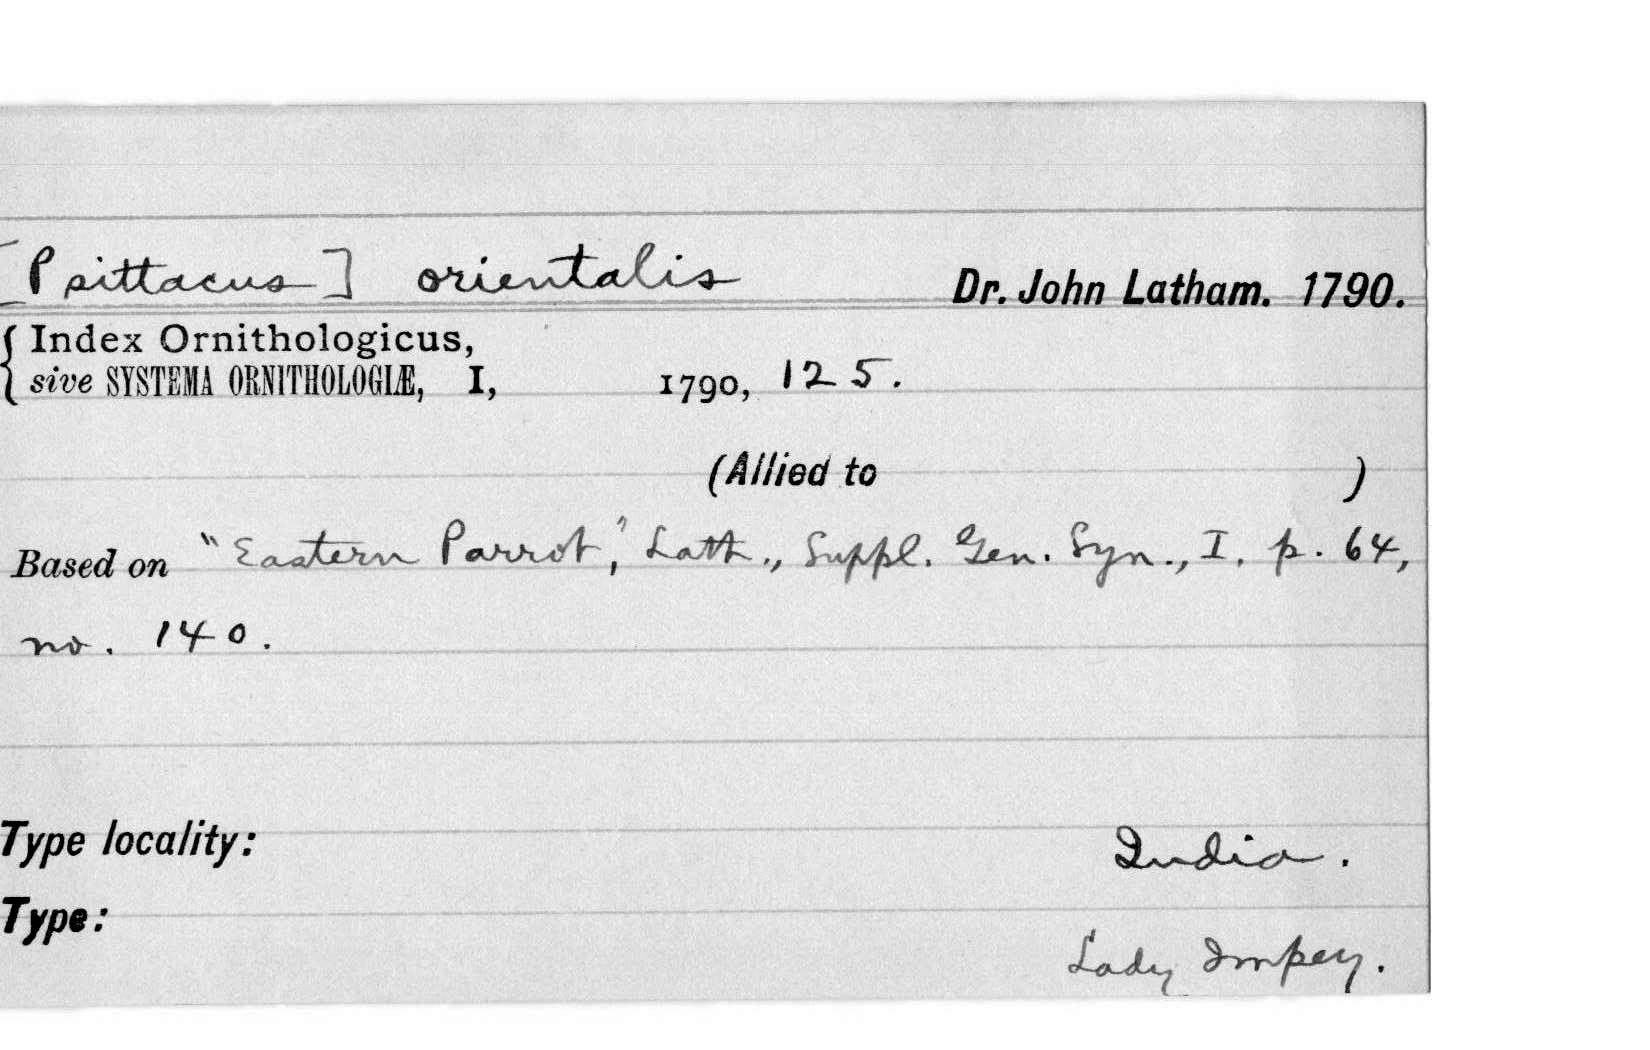 [Psittacus] orientalis Dr. John Latham. 1790.
{ Index Ornithologicus,
sive SYSTEMA ORNITHOLOGIÆ, I, 1790, 125.
(Allied to )
Based on "Eastern Parrot," Lath., Suppl. Gen. Syn., I, p. 64,
no. 140.
Type locality: India.
Type:
Lady Impey.